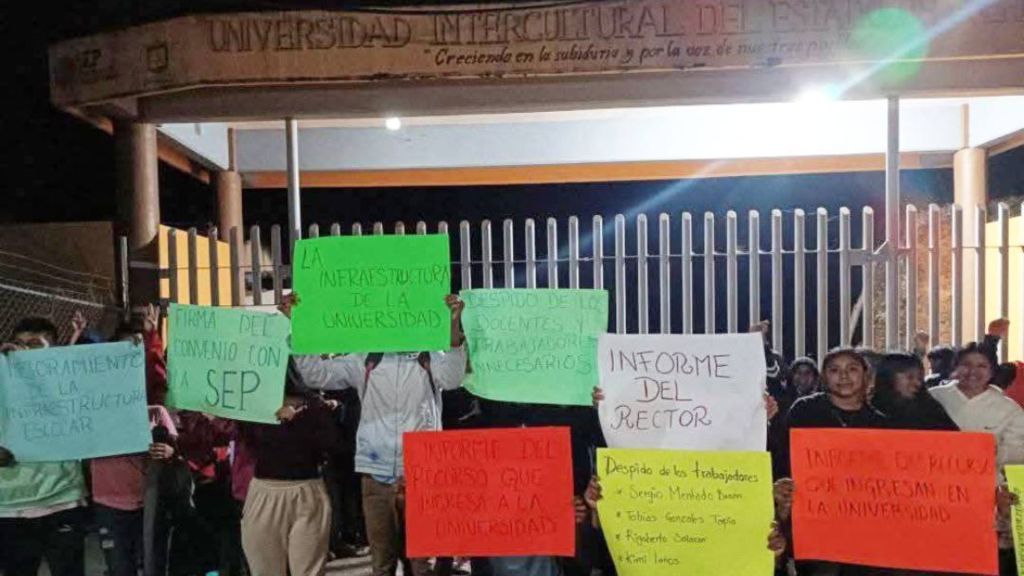 UNIVERSIDAD INTERCULTURAL DEL ESTADO
"Creciendo en la sabiduría y por la voz de nuestros
LA
INFRAESTRUCTURA
DE LA
UNIVERSIDAD
DESPIDO DE LOS
DOCENTES Y
TRABAJADORES
INNECESARIOS
FIRMA DEL
CONVENIO CON
LA SEP
MEJORAMIENTO
LA
INFRAESTRUCTURA
ESCOLAR
INFORME
DEL
RECTOR
INFORME DEL
RECURSO QUE
INGRESA A LA
UNIVERSIDAD
Despido de los trabajadores
* Sergio
* Tobias Gonzales Tapia
* Rigoberto Salazar
* Kimi
INFORME DEL RECURSO
QUE INGRESAN EN
LA UNIVERSIDAD